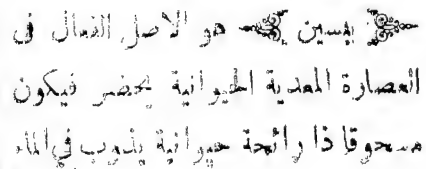 بهسين هو الاصل الفعال فى
العصارة المعدية الحيوانية يحضر فيكون
مسحوقا ذا رائحة حيوانية يذوب في الماء